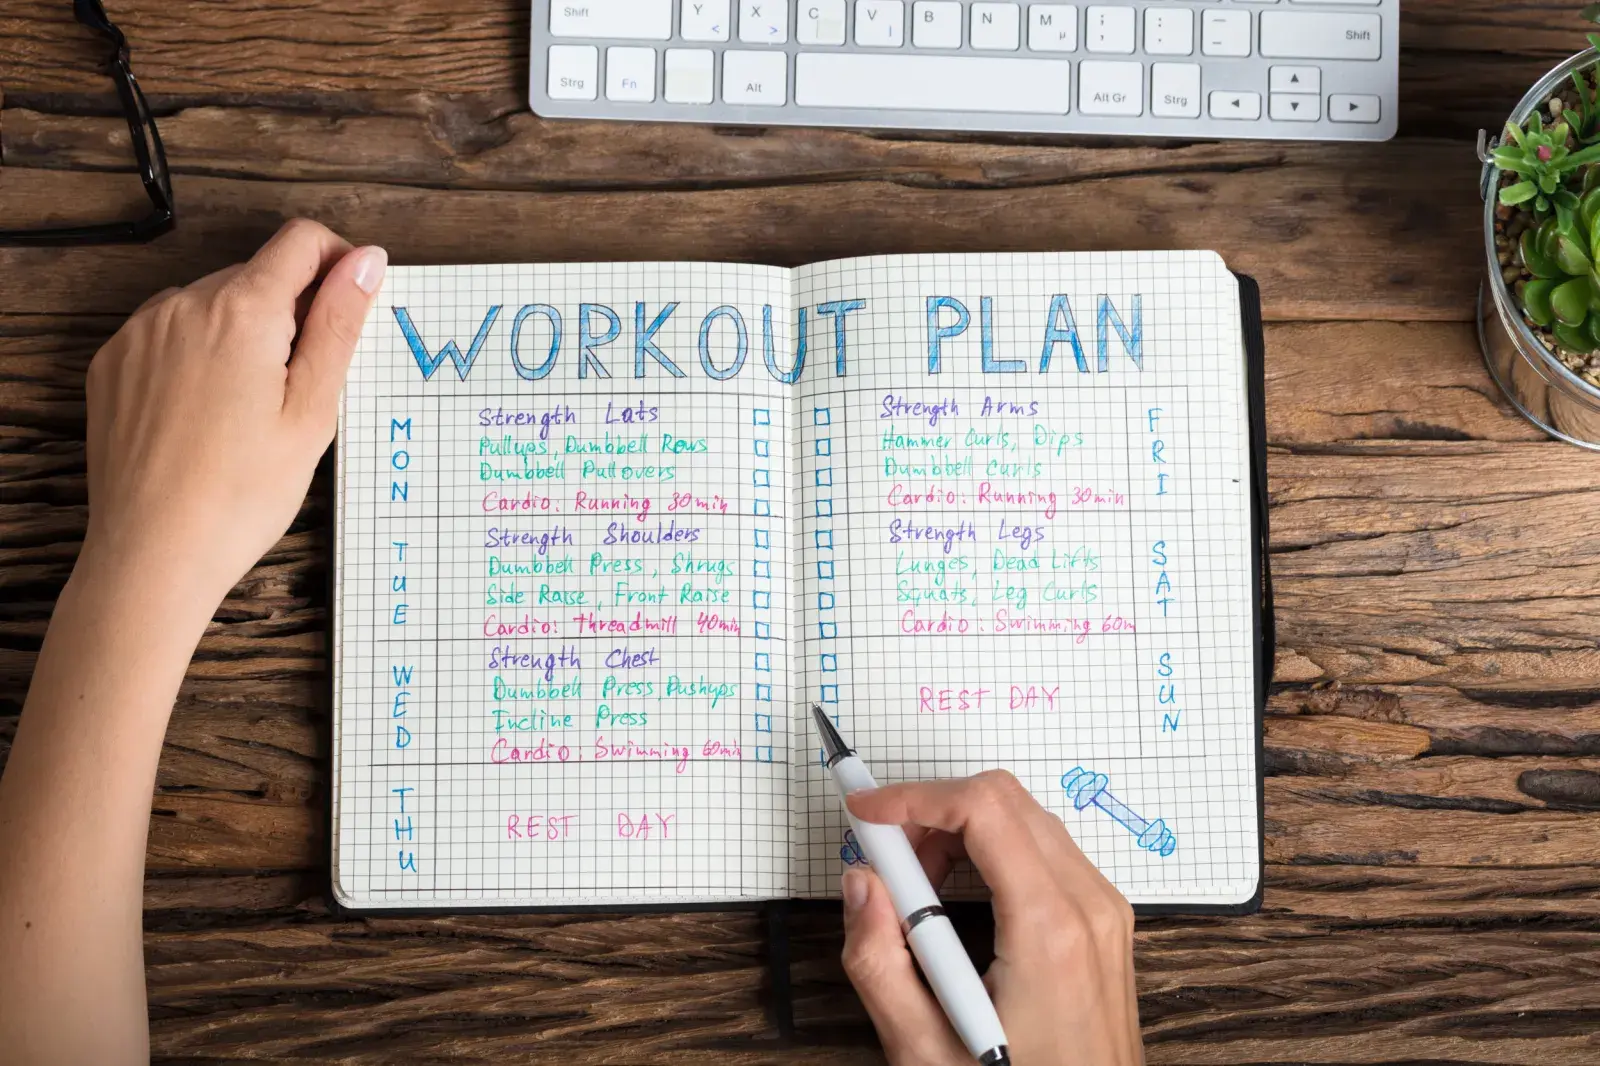 Shift Y < X > C V | B N M µ ; , : . _ – Shift
Strg Fn Alt Alt Gr Strg ◄ ▲ ▼ ►
WORKOUT PLAN
MON
Strength Lats
Pullups, Dumbbell Rows
Dumbbell Pullovers
Cardio: Running 30min
TUE
Strength Shoulders
Dumbbell Press, Shrugs
Side Raise, Front Raise
Cardio: Threadmill 40min
WED
Strength Chest
Dumbbell Press Pushups
Incline Press
Cardio: Swimming 60min
THU
REST DAY
Strength Arms
Hammer Curls, Dips
Dumbbell Curls
Cardio: Running 30min
FRI
Strength Legs
Lunges, Dead Lifts
Squats, Leg Curls
Cardio: Swimming 60m
SAT
REST DAY
SUN